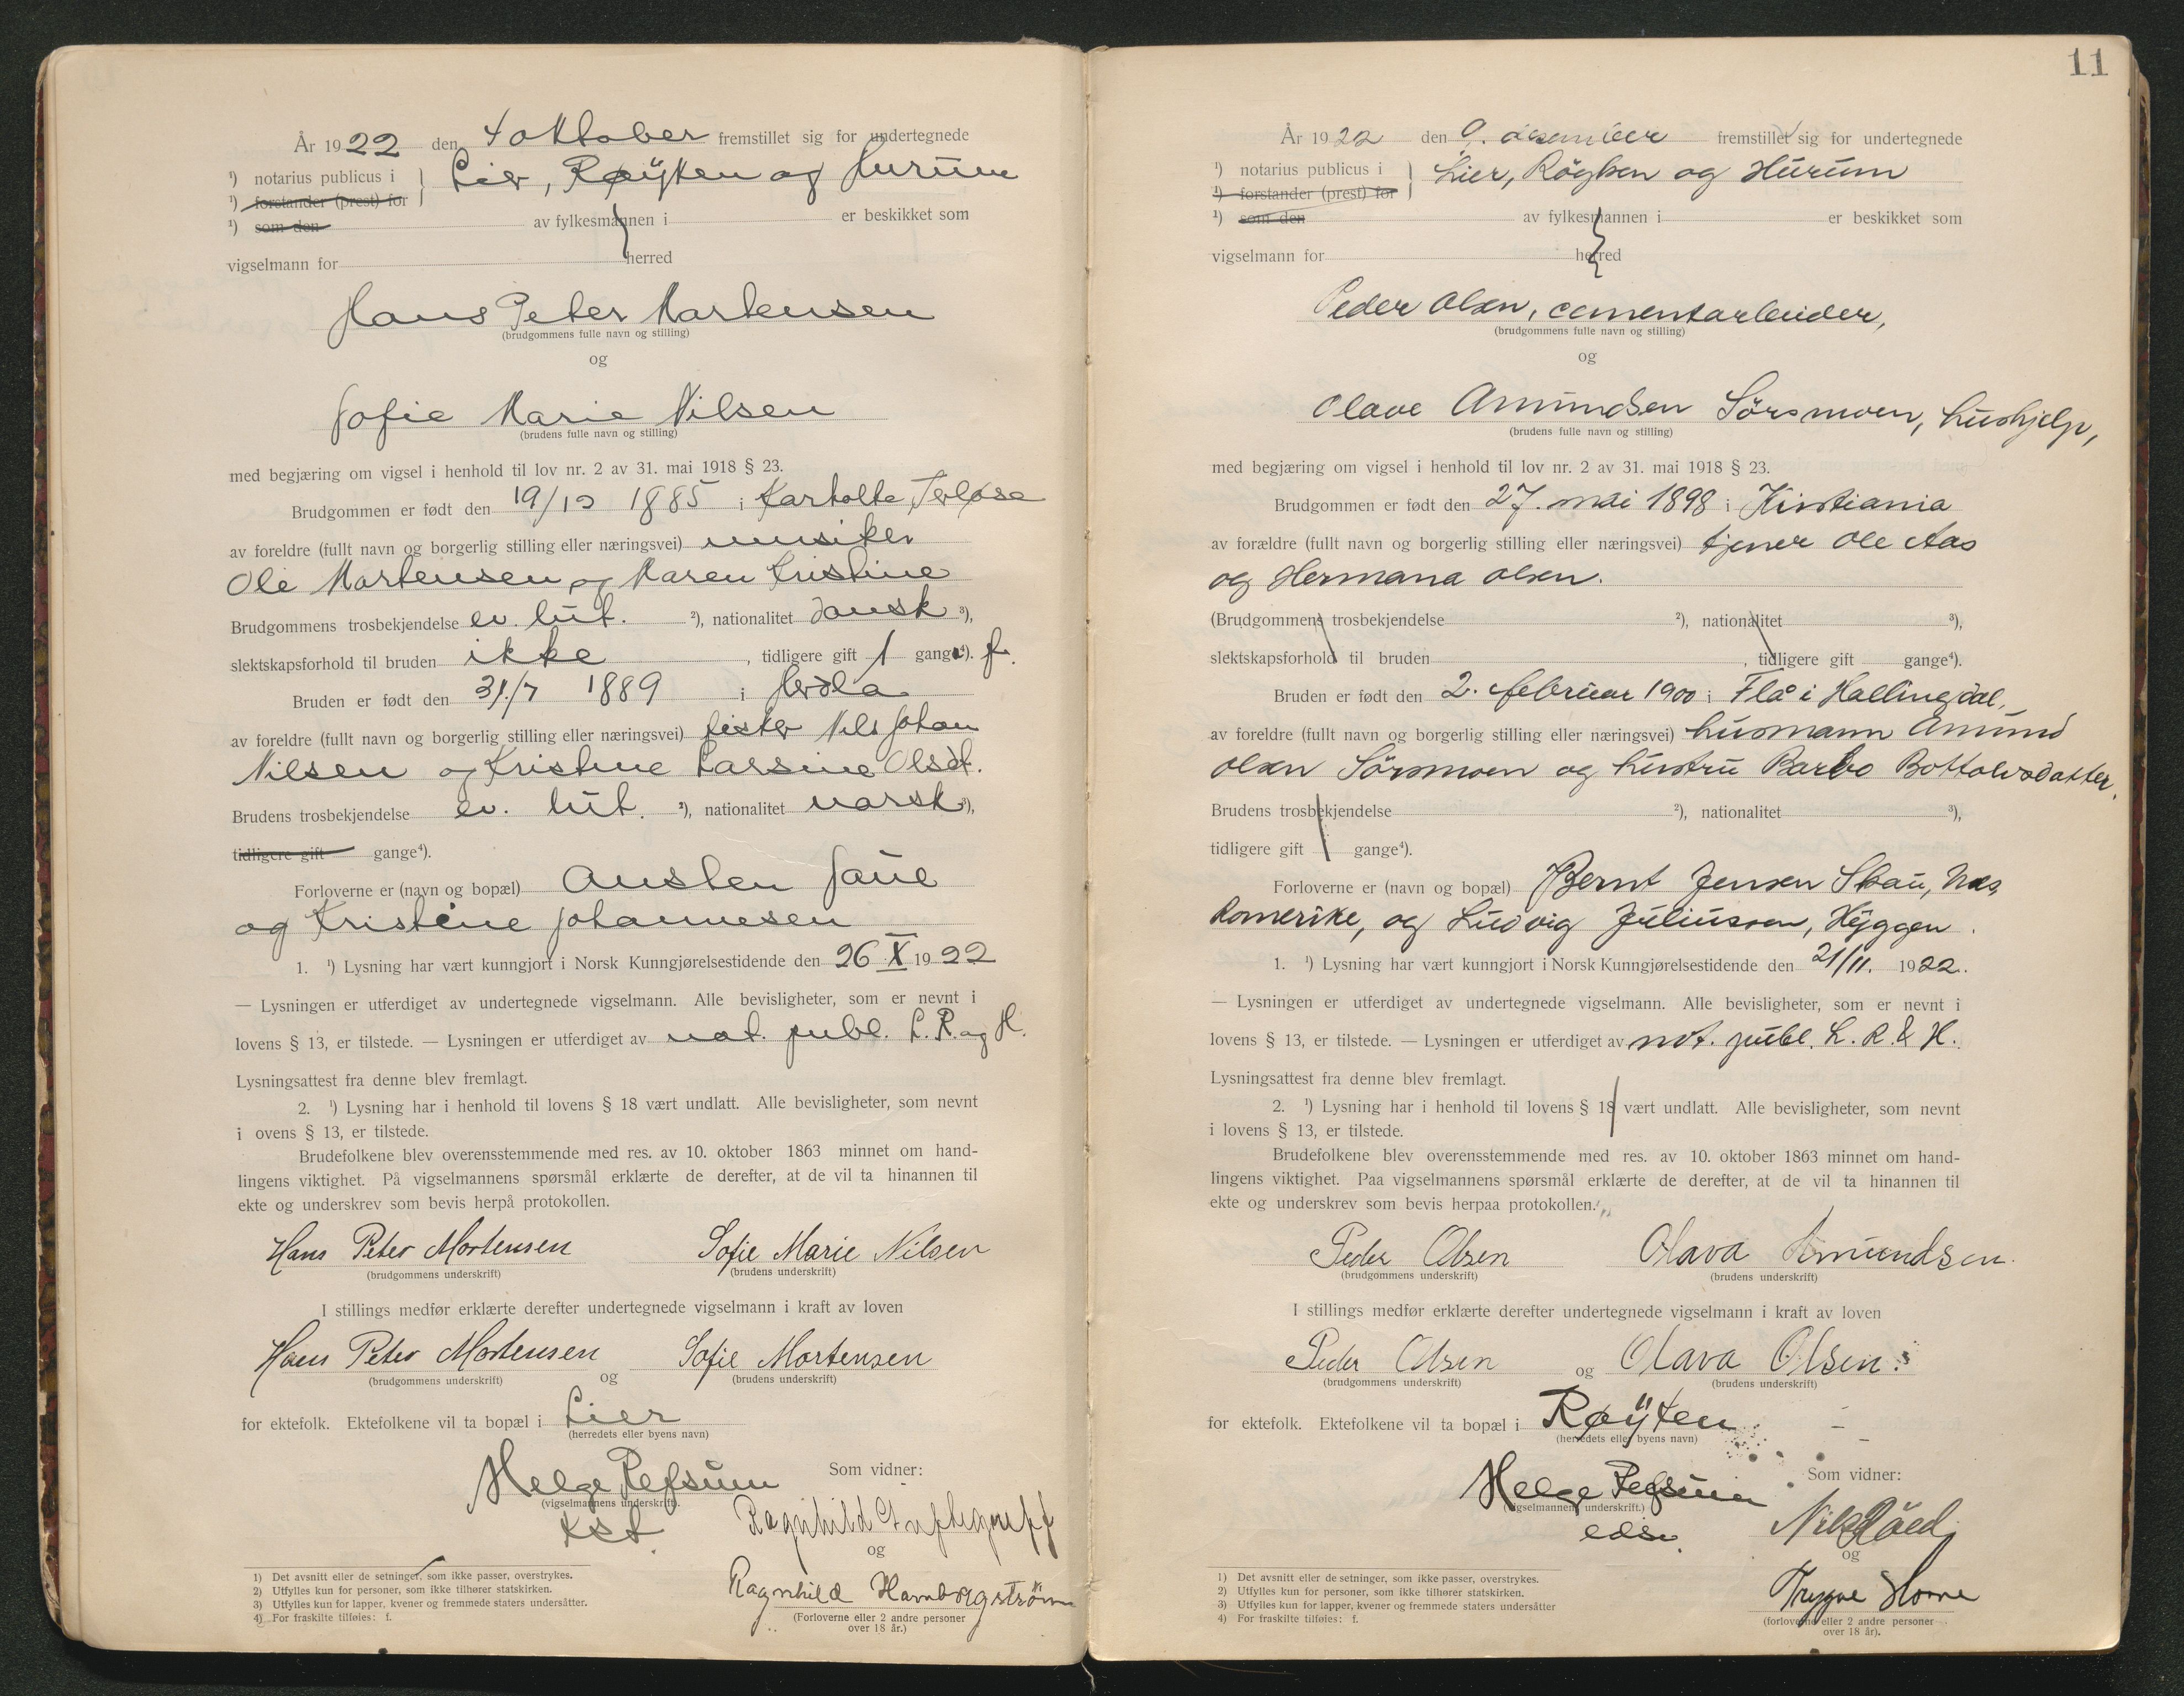 År 1922 den 4 oktober fremstillet sig for undertegnede
¹) notarius publicus i } Lier, Røyken og Hurum
¹) forstander (prest) for
¹) som den av fylkesmannen i er beskikket som
vigselmann for herred
Hans Peter Martensen
(brudgommens fulle navn og stilling)
og
Sofie Marie Nilsen
(brudens fulle navn og stilling)
med begjæring om vigsel i henhold til lov nr. 2 av 31. mai 1918 § 23.
Brudgommen er født den 19/10 1885 i Terløse
av foreldre (fullt navn og borgerlig stilling eller næringsvei) musiker
Ole Martensen og Maren Kristine
Brudgommens trosbekjendelse ev. lut. ²), nationalitet dansk ³),
slektskapsforhold til bruden ikke, tidligere gift 1 gang⁴). f.
Bruden er født den 31/7 1889 i Herdla
av foreldre (fullt navn og borgerlig stilling eller næringsvei) fisker Nils Johan
Nilsen og Kristine Larsine Olsdt.
Brudens trosbekjendelse ev. lut. ²), nationalitet norsk ³),
tidligere gift gange⁴).
Forloverne er (navn og bopæl) Austen Saue
og Kristine Johannesen
1. ¹) Lysning har vært kunngjort i Norsk Kunngjørelsestidende den 26 X 1922
— Lysningen er utferdiget av undertegnede vigselmann. Alle bevisligheter, som er nevnt i
lovens § 13, er tilstede. — Lysningen er utferdiget av not. publ. L. R. og H.
Lysningsattest fra denne blev fremlagt.
2. ¹) Lysning har i henhold til lovens § 18 vært undlatt. Alle bevisligheter, som nevnt
i ovens § 13, er tilstede.
Brudefolkene blev overensstemmende med res. av 10. oktober 1863 minnet om hand-
lingens viktighet. På vigselmannens spørsmål erklærte de derefter, at de vil ta hinannen til
ekte og underskrev som bevis herpå protokollen.
Hans Peter Mortensen Sofie Marie Nilsen
(brudgommens underskrift) (brudens underskrift)
I stillings medfør erklærte derefter undertegnede vigselmann i kraft av loven
Hans Peter Mortensen og Sofie Mortensen
(brudgommens underskrift) (brudens underskrift)
for ektefolk. Ektefolkene vil ta bopæl i Lier
(herredets eller byens navn)
Helge Refsum Som vidner:
(vigselmannens underskrift).
kst. Ragnhild
og
Ragnhild Hamborgstrøm
(Forloverne eller 2 andre personer
over 18 år.)
1) Det avsnitt eller de setninger, som ikke passer, overstrykes.
2) Utfylles kun for personer, som ikke tilhører statskirken.
3) Utfylles kun for lapper, kvener og fremmede staters undersåtter.
4) For fraskilte tilføies: f.
11
År 1922 den 9. desember fremstillet sig for undertegnede
¹) notarius publicus i } Lier, Röyken og Hurum
¹) forstander (prest) for
¹) som den av fylkesmannen i er beskikket som
vigselmann for herred
Peder Olsen, cementarbeider,
(brudgommens fulle navn og stilling)
og
Olave Amundsen Sörsmoen, hushjelp,
(brudens fulle navn og stilling)
med begjæring om vigsel i henhold til lov nr. 2 av 31. mai 1918 § 23.
Brudgommen er født den 27. mai 1898 i Kristiania
av forældre (fullt navn og borgerlig stilling eller næringsvei) tjener Ole Aas
og Hermana Olsen.
(Brudgommens trosbekjendelse ²), nationalitet ³),
slektskapsforhold til bruden, tidligere gift gange⁴).
Bruden er født den 2. februar 1900 i Flå i Hallingdal,
av foreldre (fullt navn og borgerlig stilling eller næringsvei) husmann Amund
Olsen Sörsmoen og hustru Barbo Bottolvsdatter.
Brudens trosbekjendelse ²), nationalitet ³),
tidligere gift gange⁴).
Forloverne er (navn og bopæl) Bernt Jensen Skau, Nes,
Romerike, og Ludvig Juliussen, Hyggen.
1. ¹) Lysning har vært kunngjort i Norsk Kunngjørelsestidende den 21/11. 1922.
— Lysningen er utferdiget av undertegnede vigselmann. Alle bevisligheter, som er nevnt i
lovens § 13, er tilstede. — Lysningen er utferdiget av not. publ. L. R. & H.
Lysningsattest fra denne blev fremlagt.
2. ¹) Lysning har i henhold til lovens § 18 vært undlatt. Alle bevisligheter, som nevnt
i lovens § 13, er tilstede.
Brudefolkene blev overensstemmende med res. av 10. oktober 1863 minnet om hand-
lingens viktighet. Paa vigselmannens spørsmål erklærte de derefter, at de vil ta hinannen til
ekte og underskrev som bevis herpaa protokollen.
Peder Olsen Olava Amundsen.
(brudgommens underskrift) (brudens underskrift)
I stillings medfør erklærte derefter undertegnede vigselmann i kraft av loven
Peder Olsen og Olava Olsen.
(brudgommens underskrift) (brudens underskrift)
for ektefolk. Ektefolkene vil ta bopæl i Røyken
(herredets eller byens navn)
Helge Refsum Som vidner:
(vigselmannens underskrift.)
edsv. Nils Röed
og
Trygve Horne
(forloverne eller 2 andre personer
over 18 år).
1) Det avsnitt eller de setninger, som ikke passer, overstrykes.
2) Utfylles kun for personer, som ikke tilhører statskirken.
3) Utfylles kun for lapper, kvener og fremmede staters undersåtter
4) For fraskilte tilføies: f.